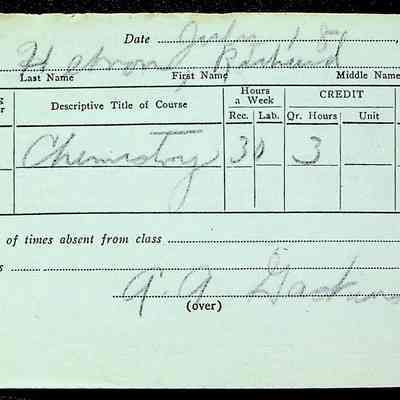 Date July 1
Richard
Last Name First Name Middle Name
Hours a Week CREDIT
Descriptive Title of Course Rec. Lab. Qr. Hours Unit
Chemistry 3 0 3
of times absent from class
(over)